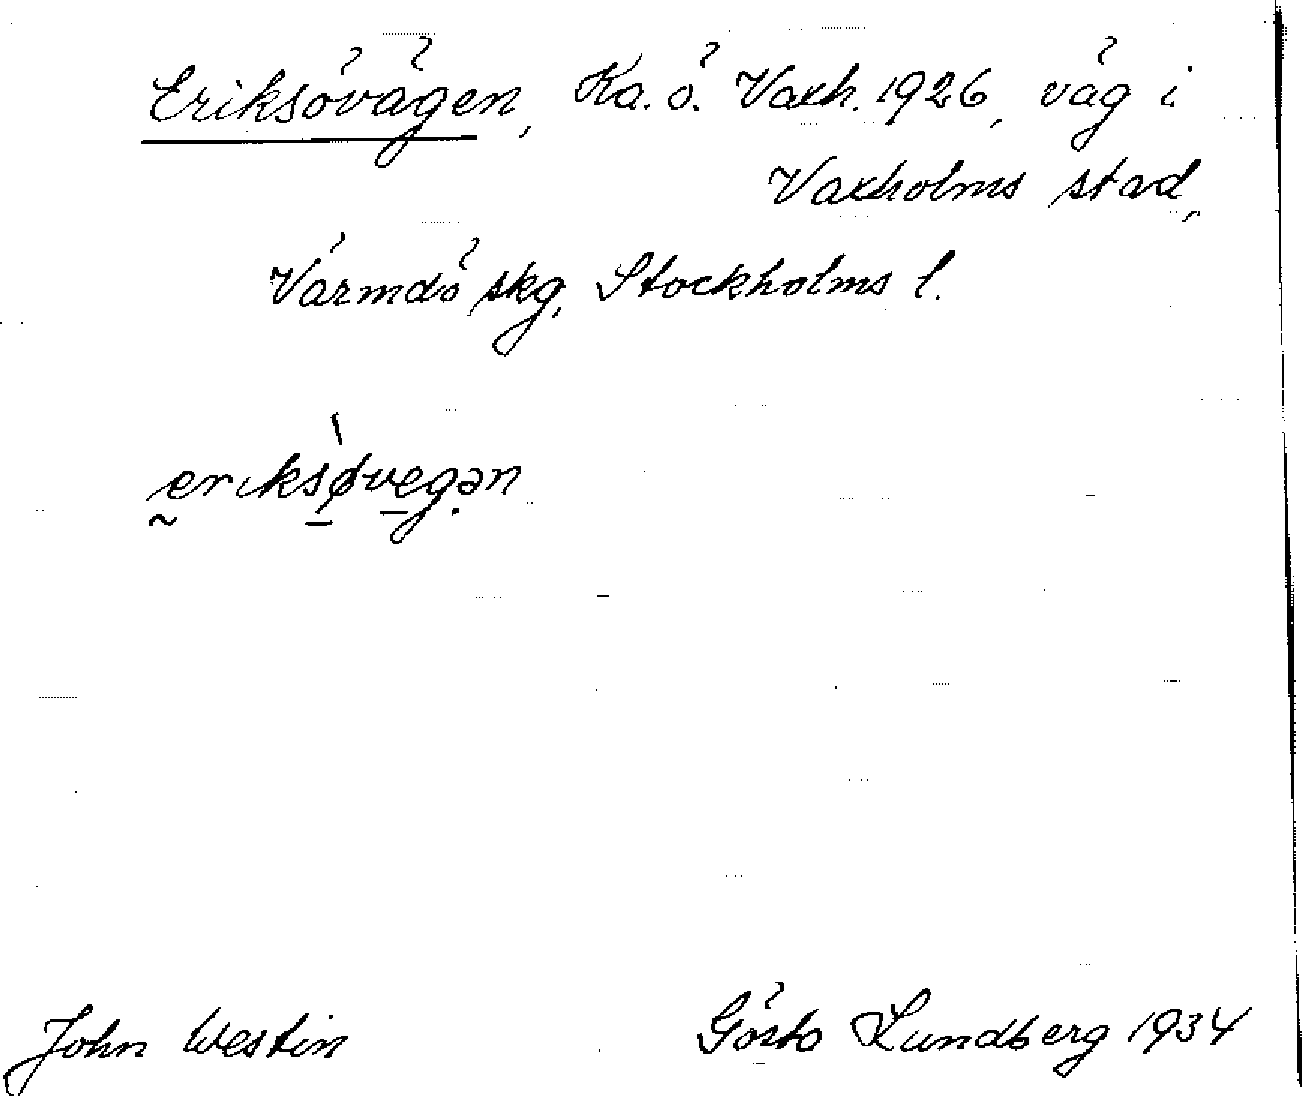 Eriksövägen, Ka. ö. Vaxh. 1926, väg i
Vaxholms stad,
Värmdö skg, Stockholms l.
eriksøvegən
John Westin Gösta Lundberg 1934